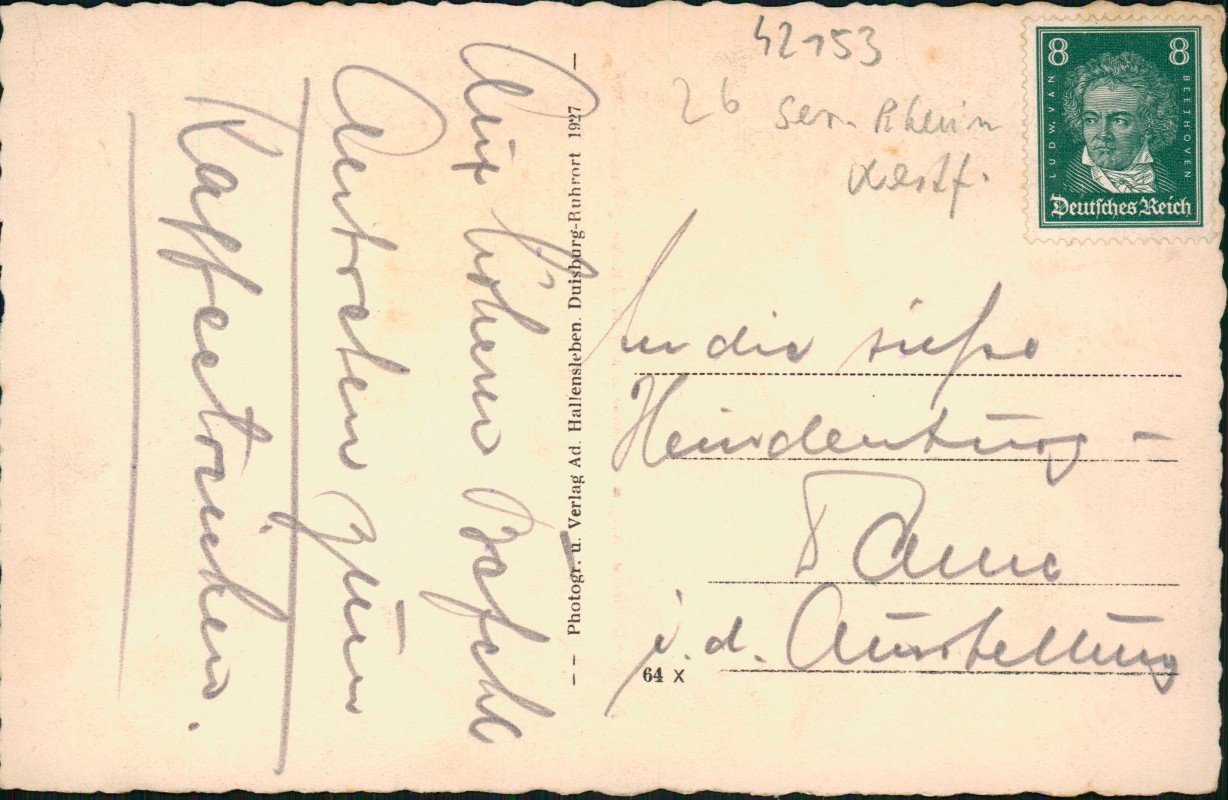 Auf höheren Befehl
Antreten zum
Kaffeetrinken.
— Photogr. u. Verlag Ad. Hallensleben. Duisburg-Ruhrort 1927 —
42153
26 Rhein
Westf.
8 8
LUDW. VAN BEETHOVEN
Deutsches Reich
An die süße
Hindenburg-
Dame
i. d. Ausstellung
64 X